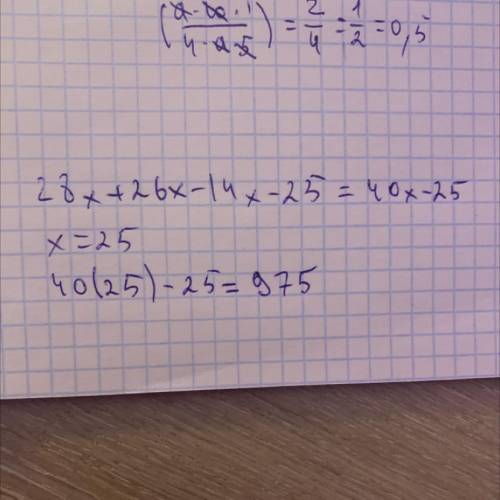 4 = 2/4 = 1/2 = 0,5
28x+26x-14x-25 = 40x-25
x=25
40(25)-25=975